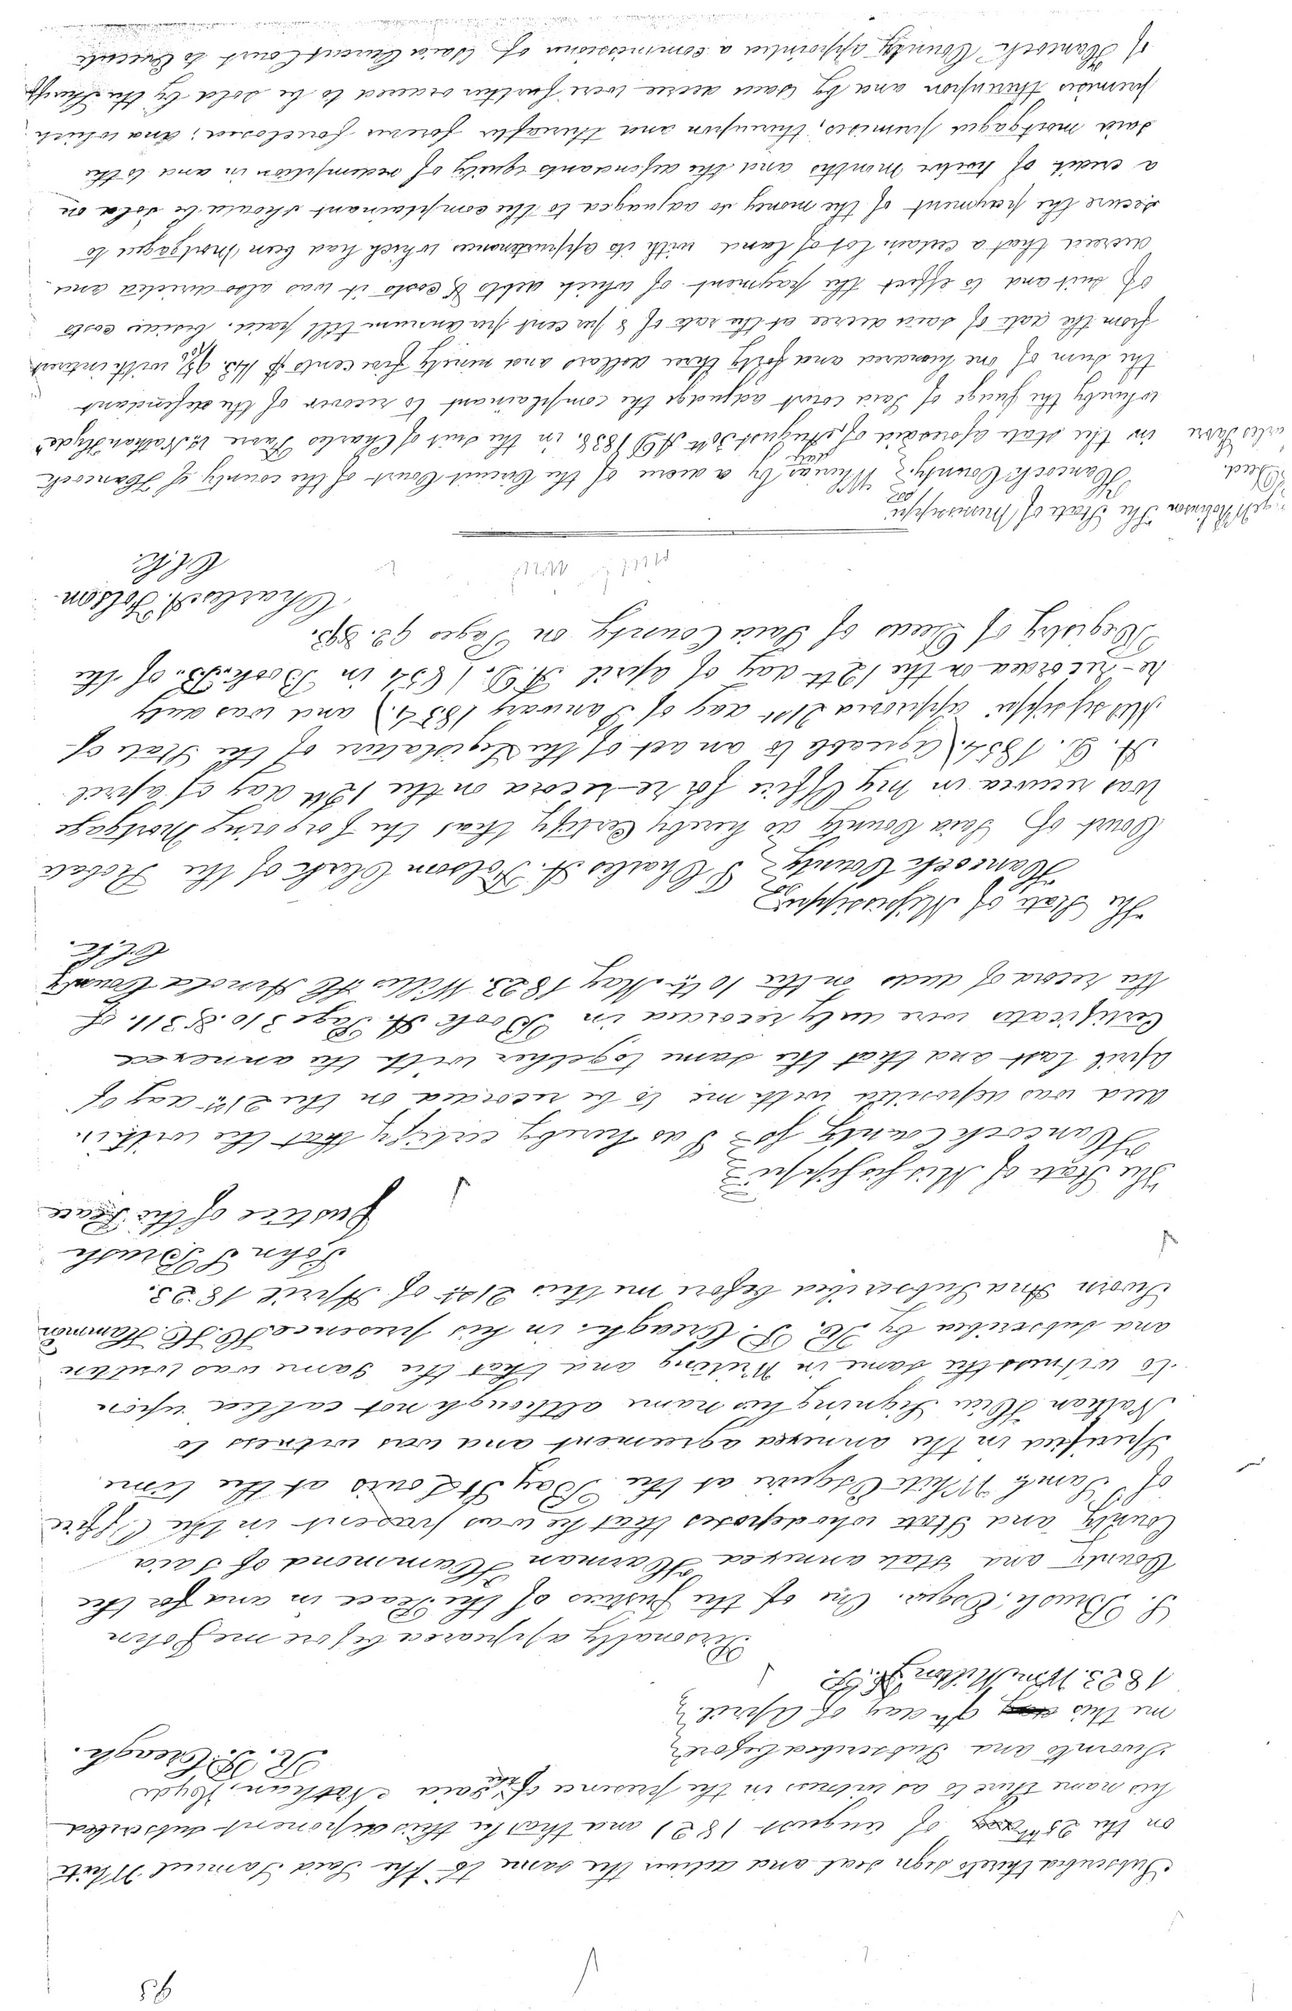 93
Subscribed thereto sign seal and deliver the same to the Said Samuel White
on the 25th day of august 1821 and that he this deponent subscribed
his name there to as witness in the presence of the Said Nathan, Hyde
R. P. Creagh.
Sworn to and Subscribed before
me this day 9th day of April
1823. Wm Milton J. P.
Personally appeared before me John
S. Brush, Esqr. One of the Justices of the Peace in and for the
County and State annexed Harman Hammond of Said
County and State who deposes that he was present in the Office
of Saml White Esquire at the Bay St Louis at the time
Specified in the annexed agreement and was witness to
Nathan Hide Signing his name although not called upon
to witness the same in Writing and that the Same was written
and subscribed by R. P. Creagh. in his presence. H. H. Hammond
Sworn And Subscribed before me this 21st of April 1823.
John S Brush
Justice of the Peace
The State of Mississippi
Hancock County ss I do hereby certify that the within
deed was deposited with me to be recorded on the 21st day of
April last and that the same together with the annexed
Certificates were duly recorded in Book A. Page 310. & 311. of
the record of deeds on the 10th May 1823. Willis H Arnold County
Clk.
The State of Mississippi
Hancock County I Charles A. Folsom Clerk of the Probate
Court of Said County do hereby Certify that the forgoing Mortgage
Was received in my Office for re-record on the 12th day of April
A. D. 1854. (Agreeable to an act of the Legislature of the State of
Mississippi approved 21st day of January 1854.) and was duly
re-recorded on the 12th day of April A. D. 1854 in Book. B. of the
Registry of Deeds of Said County on Pages 92. & 93.
Charles A. Folsom
Clk.
W Robinson The State of Mississippi
Deed. Hancock County. ss Whereas by a decree of the Circuit Court of the county of Hancock
in the state aforesaid of August 30th AD 1838, in the suit of Charles Fure vs Nathan Hyde
whereby the Judge of Said court adjudge the complainant to recover of the defendant
the Sum of one hundred and forty three dollars and ninety five cents $ 143. 95/100 with interest
from the date of said decree at the rate of 8 per cent per annum till paid. besides costs
of suit and to effect the payment of which debts & costs it was also directed and
decreed that a certain lot of land with its appurtenances which had been Mortgaged to
secure the payment of the money so adjudged to the complainant should be sold on
a credit of twelve months and the defendants equity of redemption in and to the
said mortgaged premises, thereupon and thereafter forever foreclosed; and which
premises thereupon and by said decree were further ordered to be sold by the Sheriff
of Hancock County appointed a commissioner of Said Circuit Court to Execute